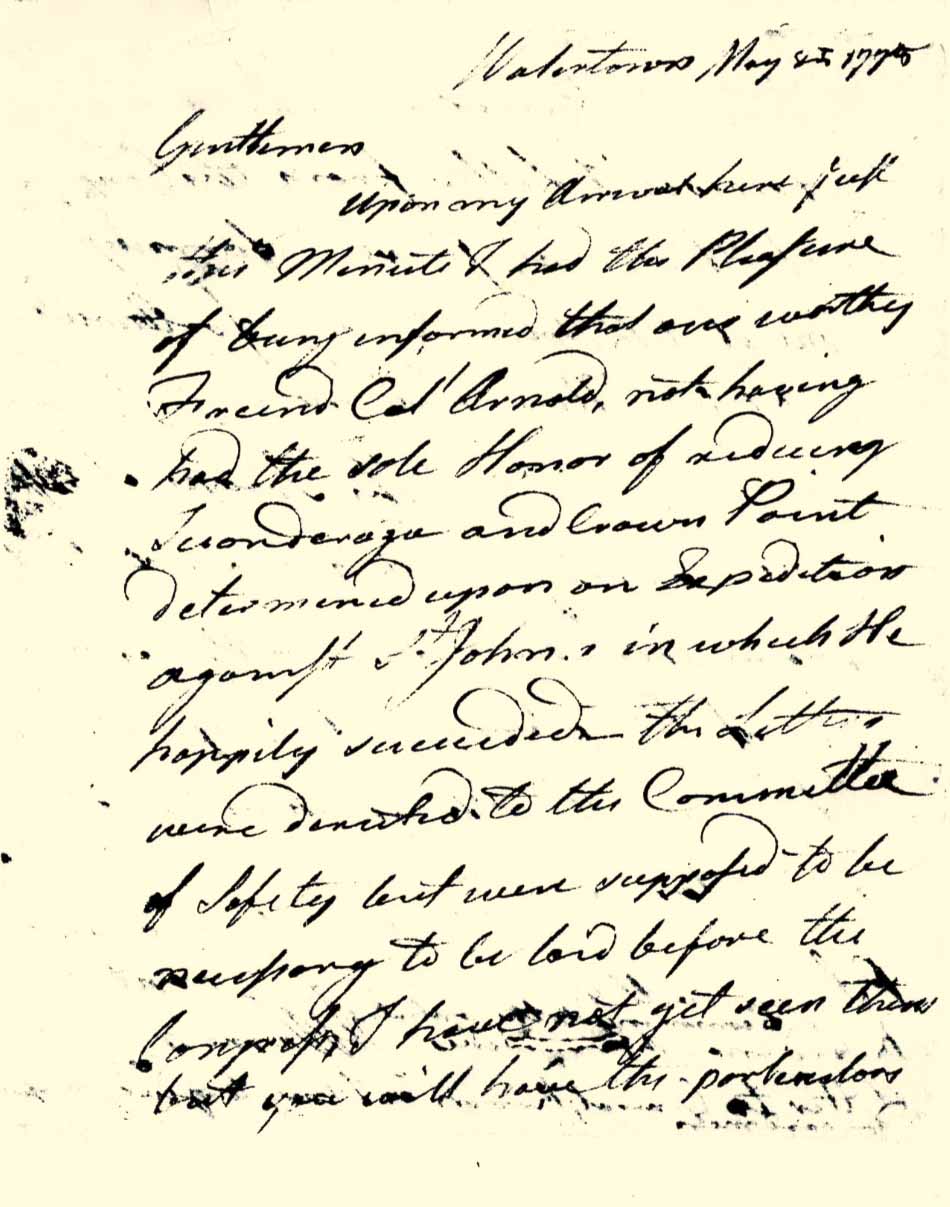 Watertown May 1775
Gentlemen
Upon my Arrival here just
this Minute I had the Pleasure
of being informed that our worthy
Freind Col Arnold, not having
had the sole Honor of reducing
Ticonderoga and Crown Point
determined upon an Expedition
against St. Johns in which He
happily succeeded the Letters
were directed to the Committee
of Safety but were supposed to be
necessary to be laid before the
Congress I have not yet seen them
but you will have the particulars